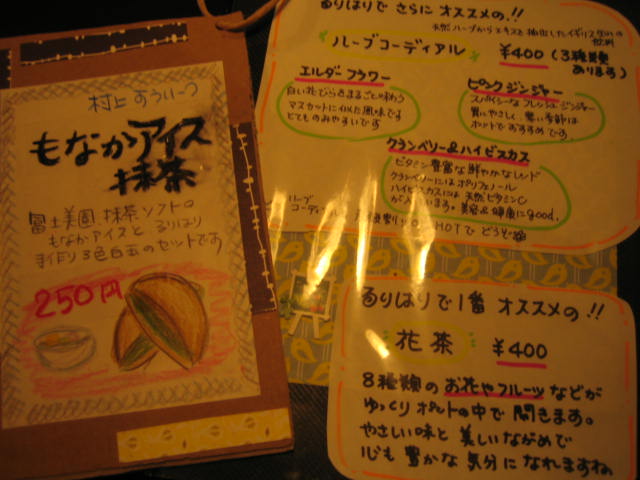 村上 すうぃーつ
もなかアイス
抹茶
冨士美園 抹茶ソフトの
もなかアイスと るりはり
手作り3色白玉のセットです
250円
るりはりで さらに オススメの!!
天然ハーブからエキスを抽出したイギリス伝いの
飲料
ハーブコーディアル ¥400(3種類
あります)
エルダーフラワー
白い花びらをまるごと味わう
マスカットに似た風味です
とてものみやすいです
ピンクジンジャー
スパイシーなフレッシュジンジャー
胃にやさしく、寒い季節は
ホットでおすすめです。
クランベリー&ハイビスカス
ビタミン豊富な鮮やかなレッド
クランベリーにはポリフェノール
ハイビスカスには天然ビタミンC
が入っています。美容&健康にgood.
ハーブ
コーディアル
HOTでどうぞ
るりはりで1番 オススメの!!
花茶 ¥400
8種類の お花やフルーツなどが
ゆっくり ポットの中で 開きます。
やさしい味と 美しいながめで
心も 豊かな 気分に なれますね